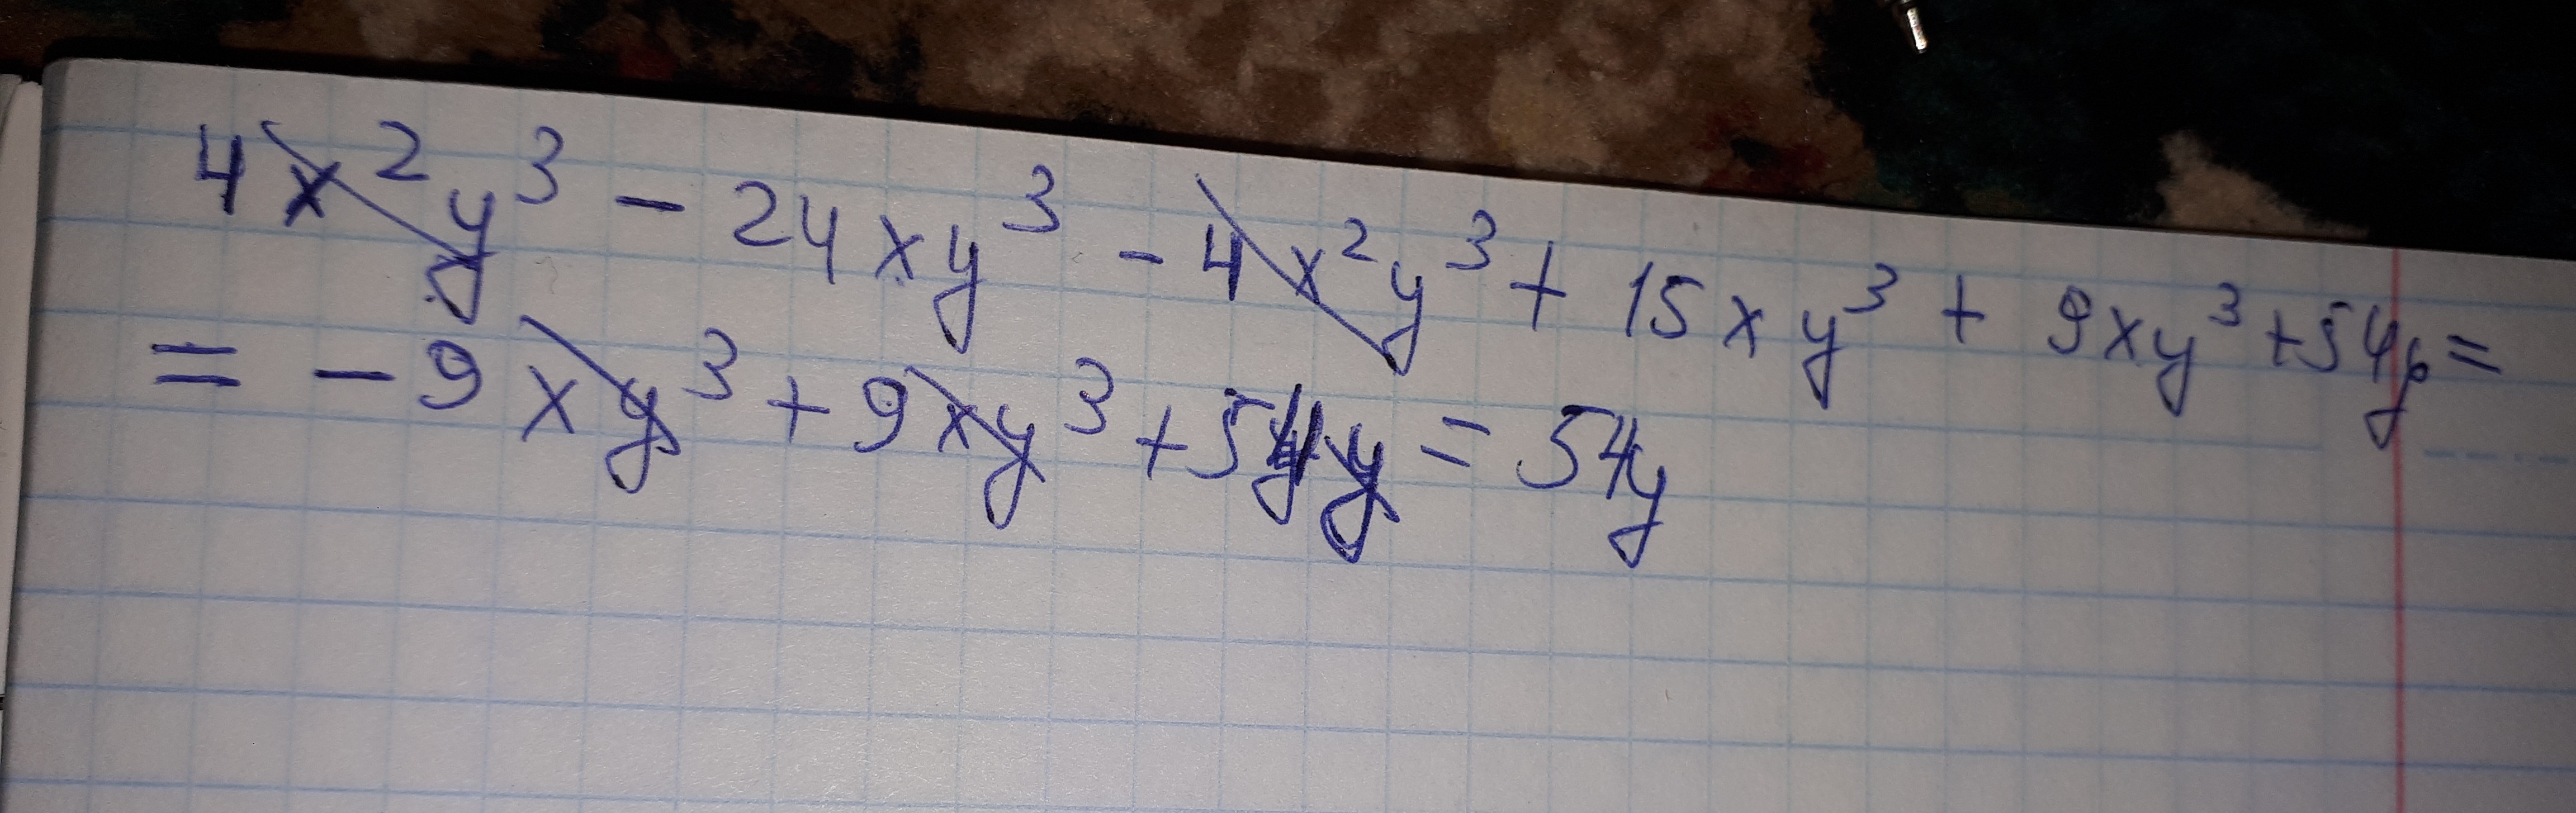 4x²y³ - 24xy³ - 4x²y³ + 15xy³ + 9xy³ + 54y =
= - 9xy³ + 9xy³ + 54y = 54y